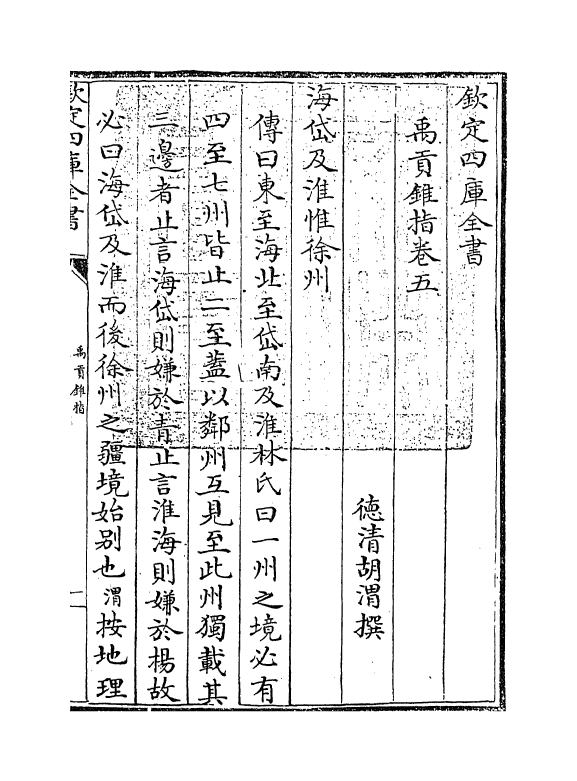 欽定四庫全書
禹貢錐指卷五
德清胡渭撰
海岱及淮惟徐州
傳曰東至海北至岱南及淮林氏曰一州之境必有
四至七州皆止二至蓋以鄰州互見至此州獨載其
三邊者止言海岱則嫌於青止言淮海則嫌於楊故
必曰海岱及淮而後徐州之疆境始别也渭按地理
欽定四庫全書
禹貢錐指